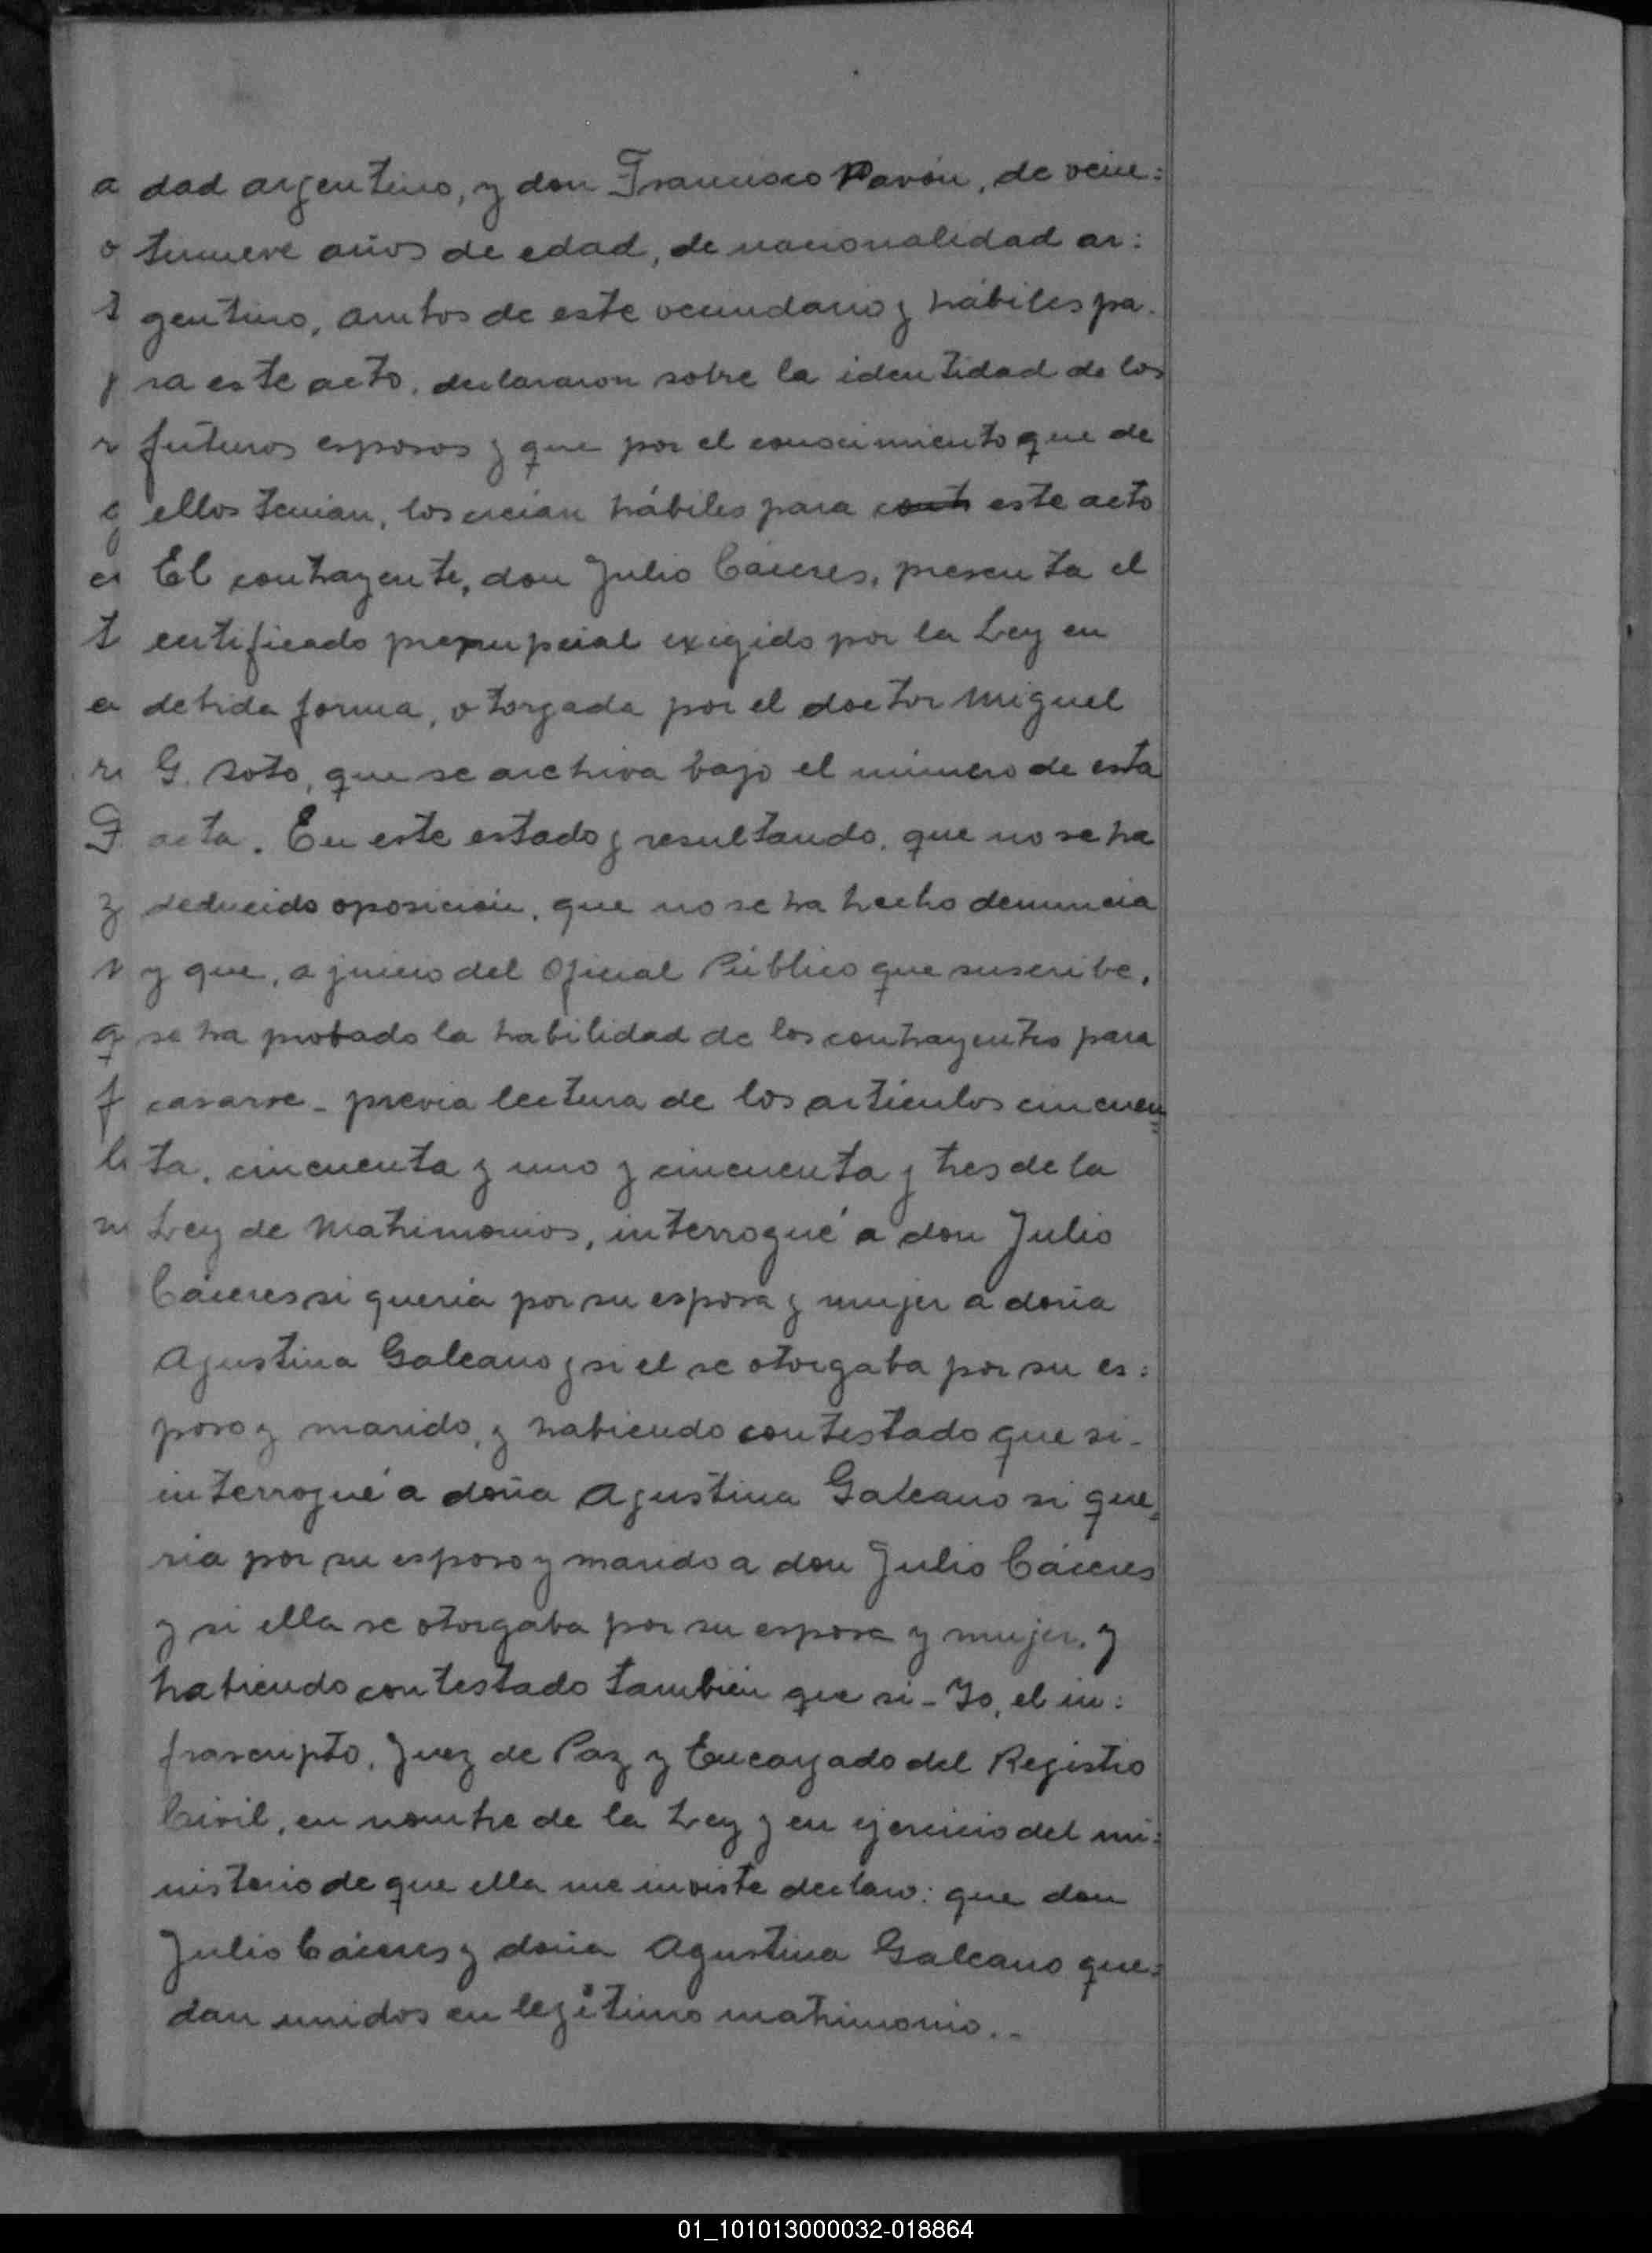 dad argentino, y don Francisco Pavón, de vein=
tinueve años de edad, de nacionalidad ar=
gentino, ambos de este vecindario y hábiles pa-
ra este acto, declararon sobre la identidad de los
futuros esposos y que por el conocimiento que de
ellos tenian, los creían hábiles para este acto
El contrayente, don Julio Cáceres, presenta el
certificado prenupcial exigido por la Ley en
debida forma, otorgada por el doctor Miguel
G. Soto, que se archiva bajo el número de esta
acta. En este estado y resultando, que no se ha
deducido oposición, que no se ha hecho denuncia
y que, a juicio del Oficial Público que suscribe,
se ha probado la habilidad de los contrayentes para
casarse - previa lectura de los artículos cincuen=
ta, cincuenta y uno y cincuenta y tres de la
Ley de Matrimonios, interrogué a don Julio
Cáceres si quería por su esposa y mujer a doña
Agustina Galeano y si el se otorgaba por su es=
poso y marido, y habiendo contestado que si -
interrogué a doña Agustina Galeano si que=
ria por su esposo y marido a don Julio Cáceres
y si ella se otorgaba por su esposa y mujer, y
habiendo contestado también que si - Yo, el in=
frascripto, Juez de Paz y Encargado del Registro
Civil, en nombre de la Ley y en ejercicio del mi=
nisterio de que ella me inviste declaro: que don
Julio Cáceres y doña Agustina Galeano que=
dan unidos en legítimo matrimonio..-
01_101013000032-018864